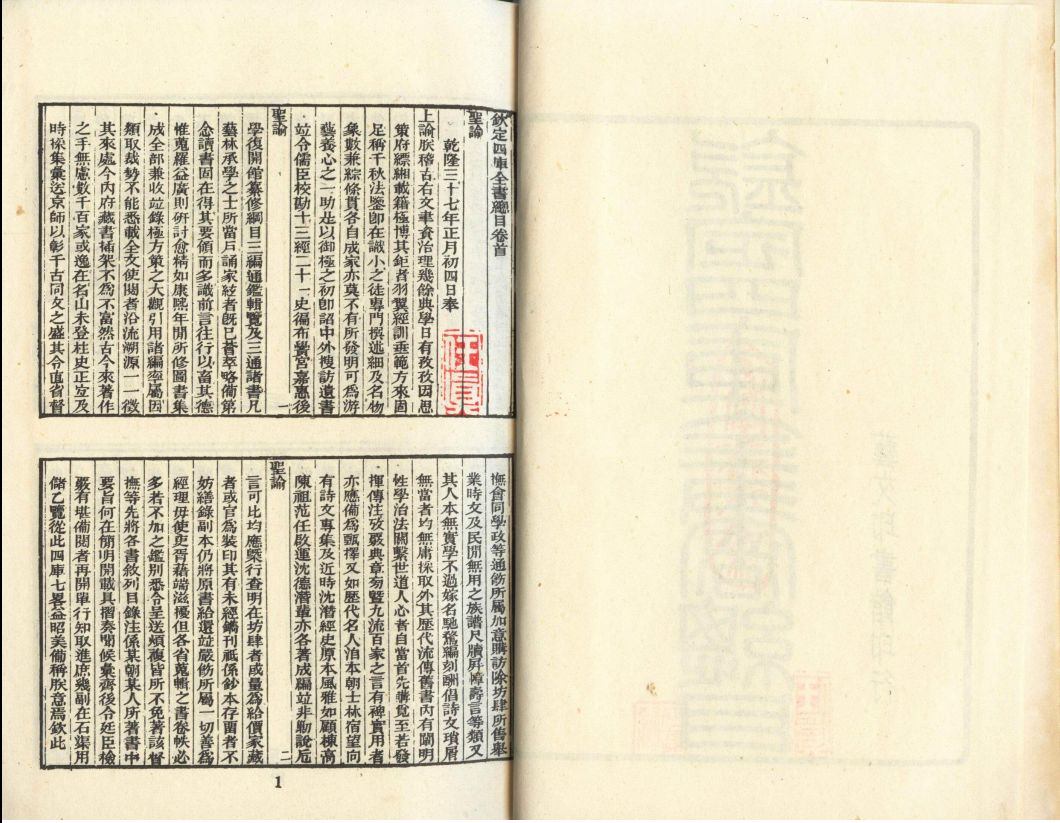 欽定四庫全書總目卷首
聖諭
乾隆三十七年正月初四日奉
上諭朕稽古右文聿資治理幾餘典學日有孜孜因思
策府縹緗載籍極博其鉅者羽翼經訓垂範方來固
足稱千秋法鑒卽在識小之徒專門撰述細及名物
象數兼綜條貫各自成家亦莫不有所發明可爲游
藝養心之一助是以御極之初卽詔中外搜訪遺書
竝令儒臣校勘十三經二十一史徧布黌宮嘉惠後
聖諭 一
學復開館纂修綱目三編通鑑輯覽及三通諸書凡
藝林承學之士所當戶誦家絃者旣已薈萃略備第
念讀書固在得其要領而多識前言往行以畜其德
惟蒐羅益廣則研討愈精如康熙年閒所修圖書集
成全部兼收竝錄極方策之大觀引用諸編率屬因
類取裁勢不能悉載全文使閱者沿流溯源一一徵
其來處今內府藏書插架不爲不富然古今來著作
之手無慮數千百家或逸在名山未登柱史正宜及
時採集彙送京師以彰千古同文之盛其令直省督
撫會同學政等通飭所屬加意購訪除坊肆所售舉
業時文及民閒無用之族譜尺牘屛幛壽言等類又
其人本無實學不過嫁名馳騖編刻酬倡詩文瑣屑
無當者均無庸採取外其歷代流傳舊書內有闡明
性學治法關繫世道人心者自當首先購覓至若發
揮傳注攷覈典章旁曁九流百家之言有裨實用者
亦應備爲甄擇又如歷代名人洎本朝士林宿望向
有詩文專集及近時沈潛經史原本風雅如顧棟高
陳祖范任啟運沈德潛輩亦各著成編竝非勦說巵
聖諭 二
言可比均應槩行查明在坊肆者或量爲給價家藏
者或官爲裝印其有未經鐫刊祗係鈔本存留者不
妨繕錄副本仍將原書給還竝嚴飭所屬一切善爲
經理毋使吏胥藉端滋擾但各省蒐輯之書卷帙必
多若不加之鑑別悉令呈送煩複皆所不免著該督
撫等先將各書敘列目錄注係某朝某人所著書中
要旨何在簡明開載具摺奏聞候彙齊後令廷臣檢
覈有堪備閱者再開單行知取進庶幾副在石渠用
儲乙覽從此四庫七畧益昭美備稱朕意焉欽此
1